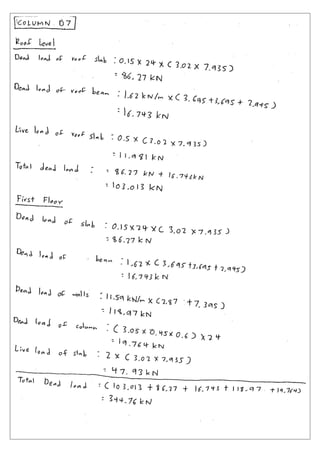 COLUMN D7
Roof Level
Dead load of roof slab : 0.15 x 24 x (3.02 x 7.935)
= 86.27 kN
Dead load of roof beam : 1.62 kN/m x (3.695 + 3.695 + 2.945)
= 16.743 kN
Live load of roof slab : 0.5 x (3.02 x 7.935)
= 11.981 kN
Total dead load : = 86.27 kN + 16.743 kN
= 103.013 kN
First Floor
Dead load of slab : 0.15 x 24 x (3.02 x 7.935)
= 86.27 kN
Dead load of beam : 1.62 x (3.695 + 3.695 + 2.945)
= 16.743 kN
Dead load of walls : 11.59 kN/m x (2.87 + 7.395)
= 118.97 kN
Dead load of column : (3.05 x 0.45 x 0.6) x 24
= 19.764 kN
Live load of slab : 2 x (3.02 x 7.935)
= 47.93 kN
Total Dead load = (103.013 + 86.27 + 16.743 + 118.97 + 19.764)
= 344.76 kN